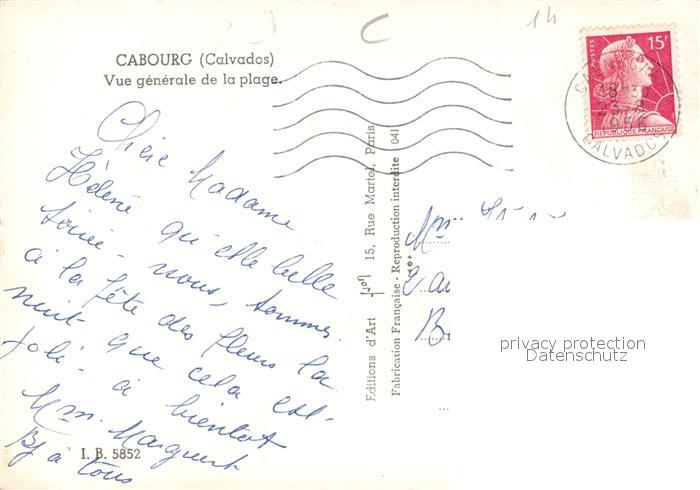 CABOURG (Calvados)
Vue générale de la plage.
Chère Madame
Hélène qu'elle belle
soirée - nous sommes
à la fête des fleurs la
nuit que cela est
joli - à bientot
Mme Marguerit
Bj à tous
I. B. 5852
Editions d'Art Yvon 15, Rue Martel, Paris
Fabrication Française - Reproduction interdite 041
15F
POSTES
REPUBLIQUE FRANÇAISE
18H30
1956
CALVADOS
14
C
Mme
privacy protection
Datenschutz